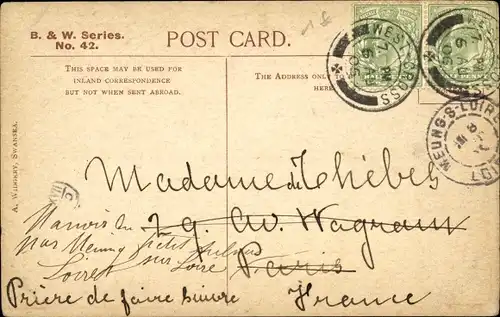 B. & W. Series.
No. 42.
POST CARD.
THIS SPACE MAY BE USED FOR
INLAND CORRESPONDENCE
BUT NOT WHEN SENT ABROAD.
THE ADDRESS ONLY TO
HERE
A. WIDDERY, SWANSEA.
WEST CROSS
7 PM
AU
05
MEUNG-S-LOIRE
Madame de Thèbes
29. Av. Wagram
Paris
Manoir du
par Meung
sur Loire
Loiret
Prière de faire suivre
France